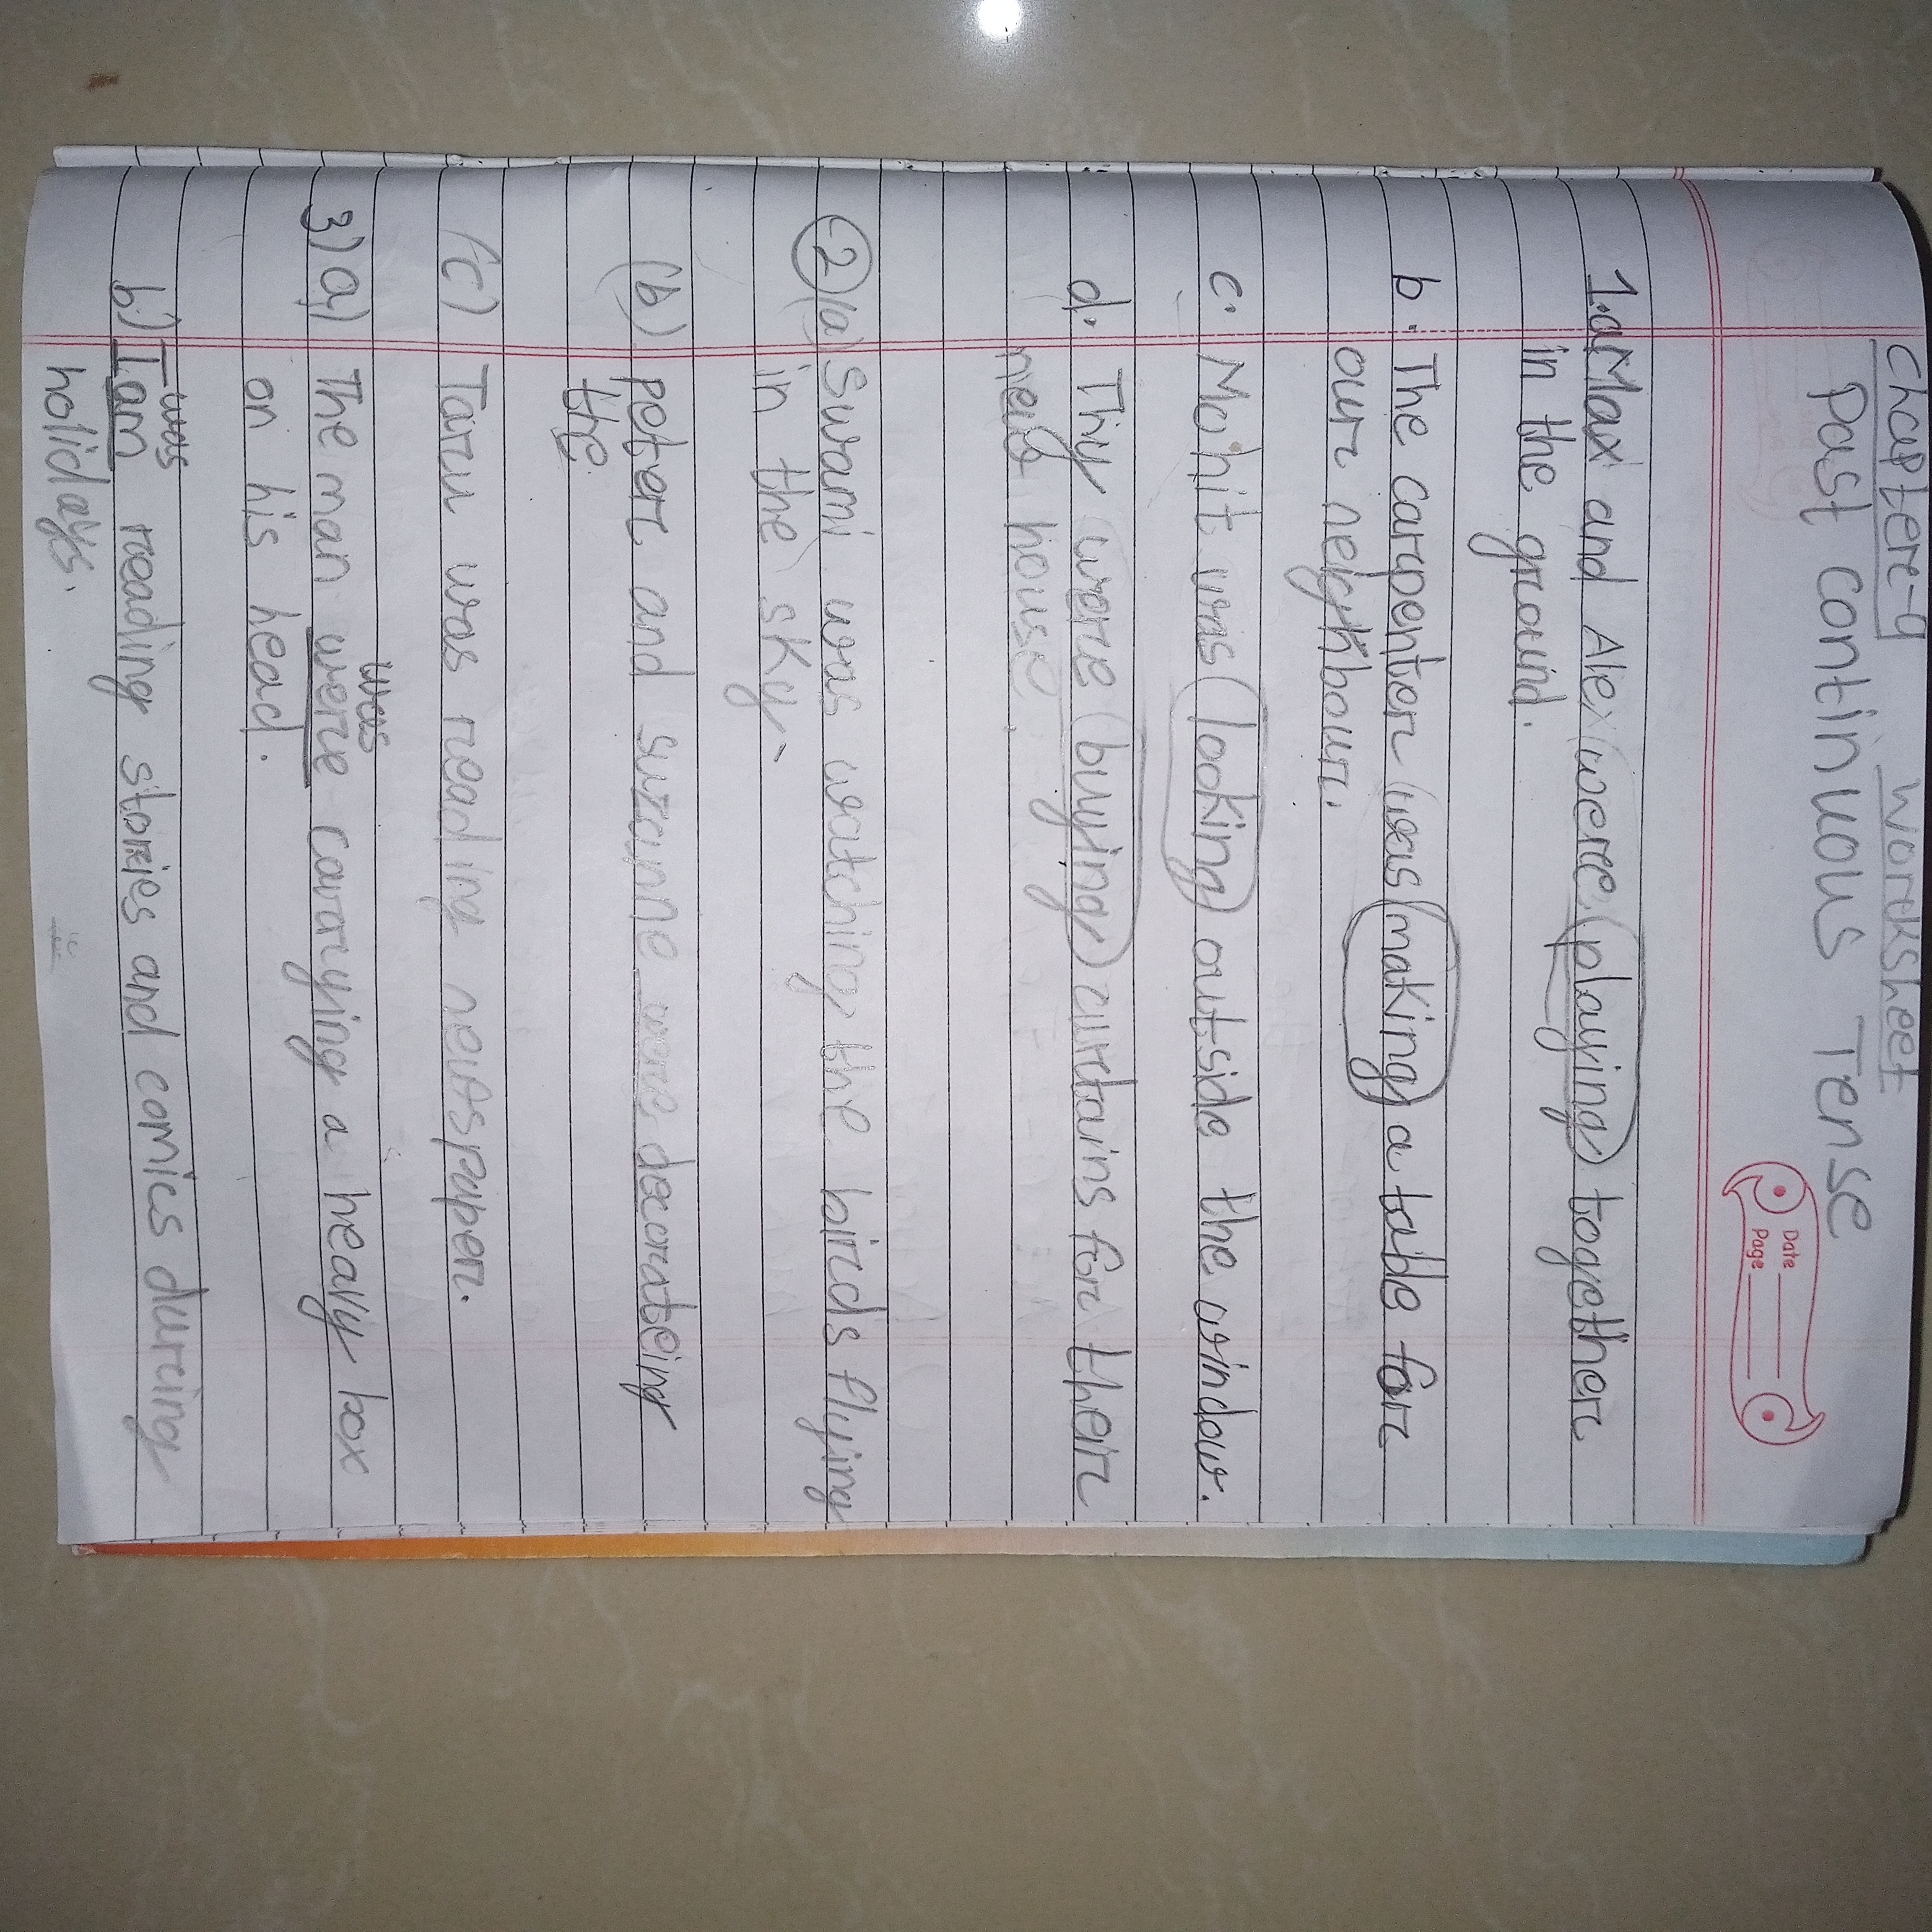 Chapter-9 Worksheet
Past Continuous Tense
Date
Page
1.a Max and Alex were playing together
in the ground.
b. The carpenter was making a table for
our neighbour.
c. Mohit was looking outside the window.
d. They were buying curtains for their
new house.
2 (a) Swami was watching the birds flying
in the sky.
(b) peter and suzanne were decorateing
the
(c) Taru was reading newspaper.
was
3) a) The man were carrying a heavy box
on his head.
I was
b) I am reading stories and comics during
holidays.